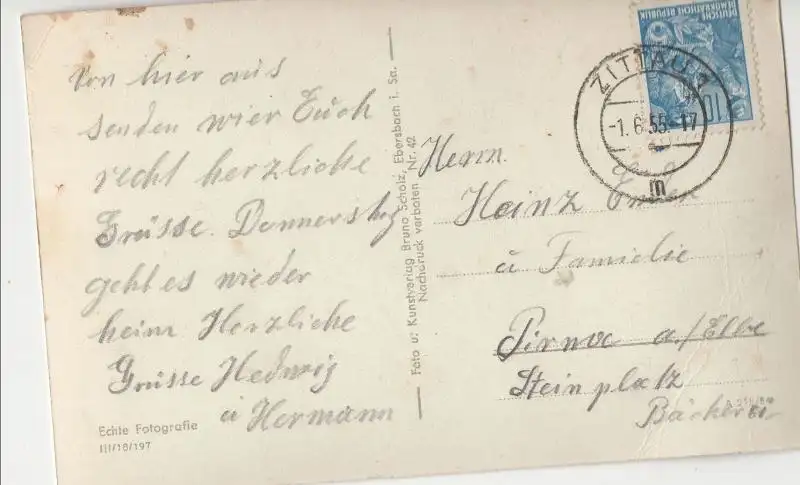 von hier aus
senden wier Euch
recht herzliche
Grüsse. Donnerstag
geht es wieder
heim Herzliche
Grüsse Hedwig
ü Hermann
Echte Fotografie
III/18/197
Foto u. Kunstverlag Bruno Scholz, Ebersbach i. Sa.
Nachdruck verboten Nr. 42
DEUTSCHE
DEMOKRATISCHE REPUBLIK
10
ZITTAU
-1.6.55.-17
m
Herrn.
Heinz
ü Familie
Pirna a./Elbe
Steinplatz
Bäckerei